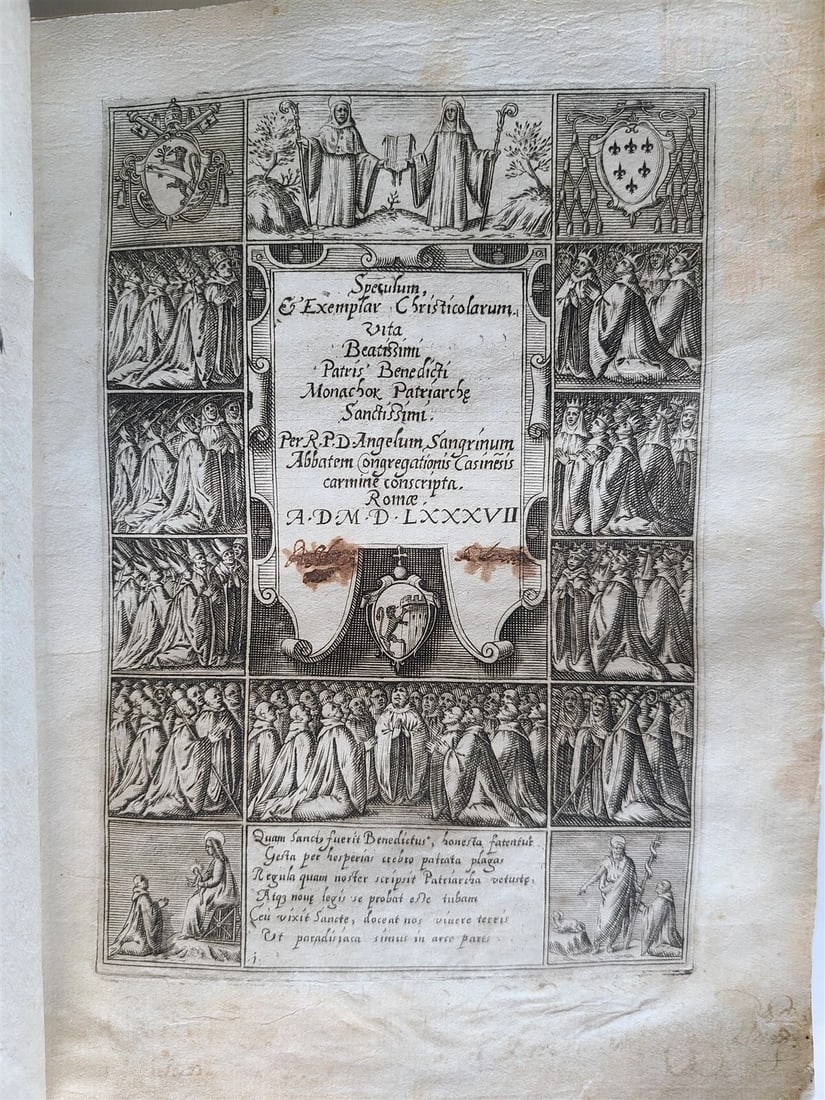 Speculum,
& Exemplar Christicolarum.
Vita
Beatissimi
Patris Benedicti
Monachoꝝ Patriarchę
Sanctissimi.
Per R.P.D. Angelum Sangrinum
Abbatem Congregationis Casinēsis
carmine conscripta.
Romæ
A·D·M·D·LXXXVII
Quam Sanctꝰ fuerit Benedictus, honesta fatentur
Gesta per hesperias crebro patrata plagas
Regula quam noster scripsit Patriarcha vetustę,
Atqꝫ nouę legis se probat esse tubam
Ceu vixit Sancte, doceat nos viuere terris
Vt paradisiaca simus in arce